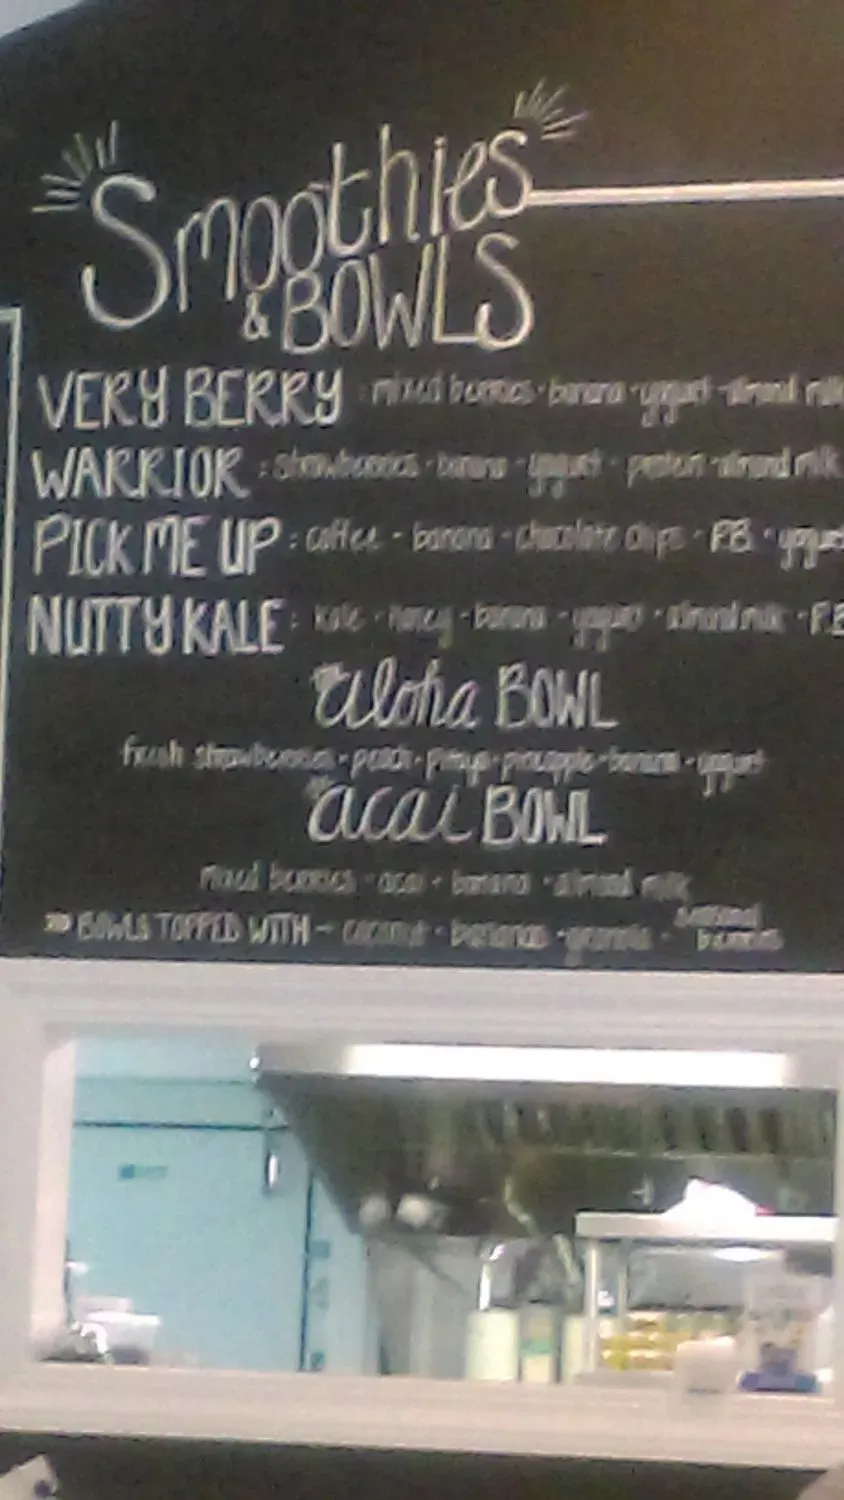 Smoothies
& BOWLS
VERY BERRY : mixed berries · banana · yogurt · almond milk
WARRIOR : strawberries · banana · yogurt · protein · almond milk
PICK ME UP : coffee · banana · chocolate chips · P.B. · yogurt
NUTTY KALE : kale · honey · banana · yogurt · almond milk · P.B
aloha BOWL
fresh strawberries · peach · pitaya · pineapple · banana · yogurt
acai BOWL
mixed berries · acai · banana · almond milk
BOWLS TOPPED WITH - coconut · bananas · granola · seasonal berries